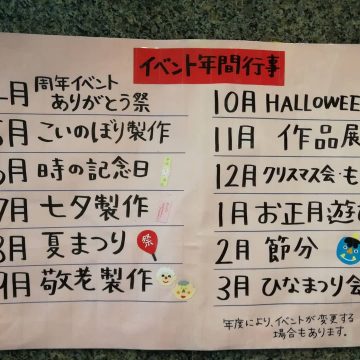 イベント年間行事
4月 周年イベント
ありがとう祭
5月 こいのぼり製作
6月 時の記念日
7月 七夕製作
8月 夏まつり 祭
9月 敬老製作
10月 HALLOWEE
11月 作品展
12月 クリスマス会・も
1月 お正月遊
2月 節分
3月 ひなまつり会
年度により、イベントが変更する
場合もあります。